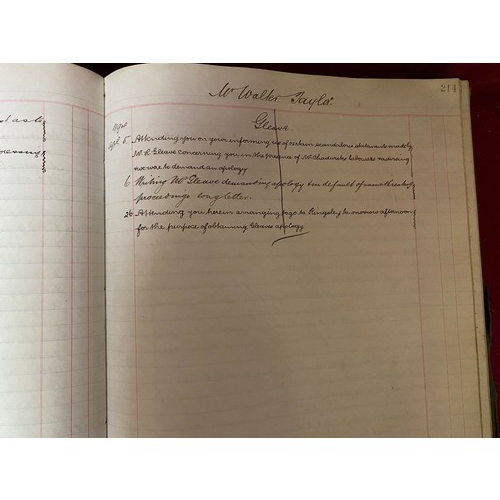 Mr Walter Taylor.
214
Gleave
Sept 5. Attending you on your informing us of certain scandalous statements made by
Mr R Gleave concerning you in the presence of Mr Chadwicks laborers
to demand an apology
6 Writing Mr Gleave demanding apology in default of
proceedings long letter.
26 Attending you herein arranging to go to Kingsley tomorrow afternoon
for the purpose of obtaining Gleaves apology